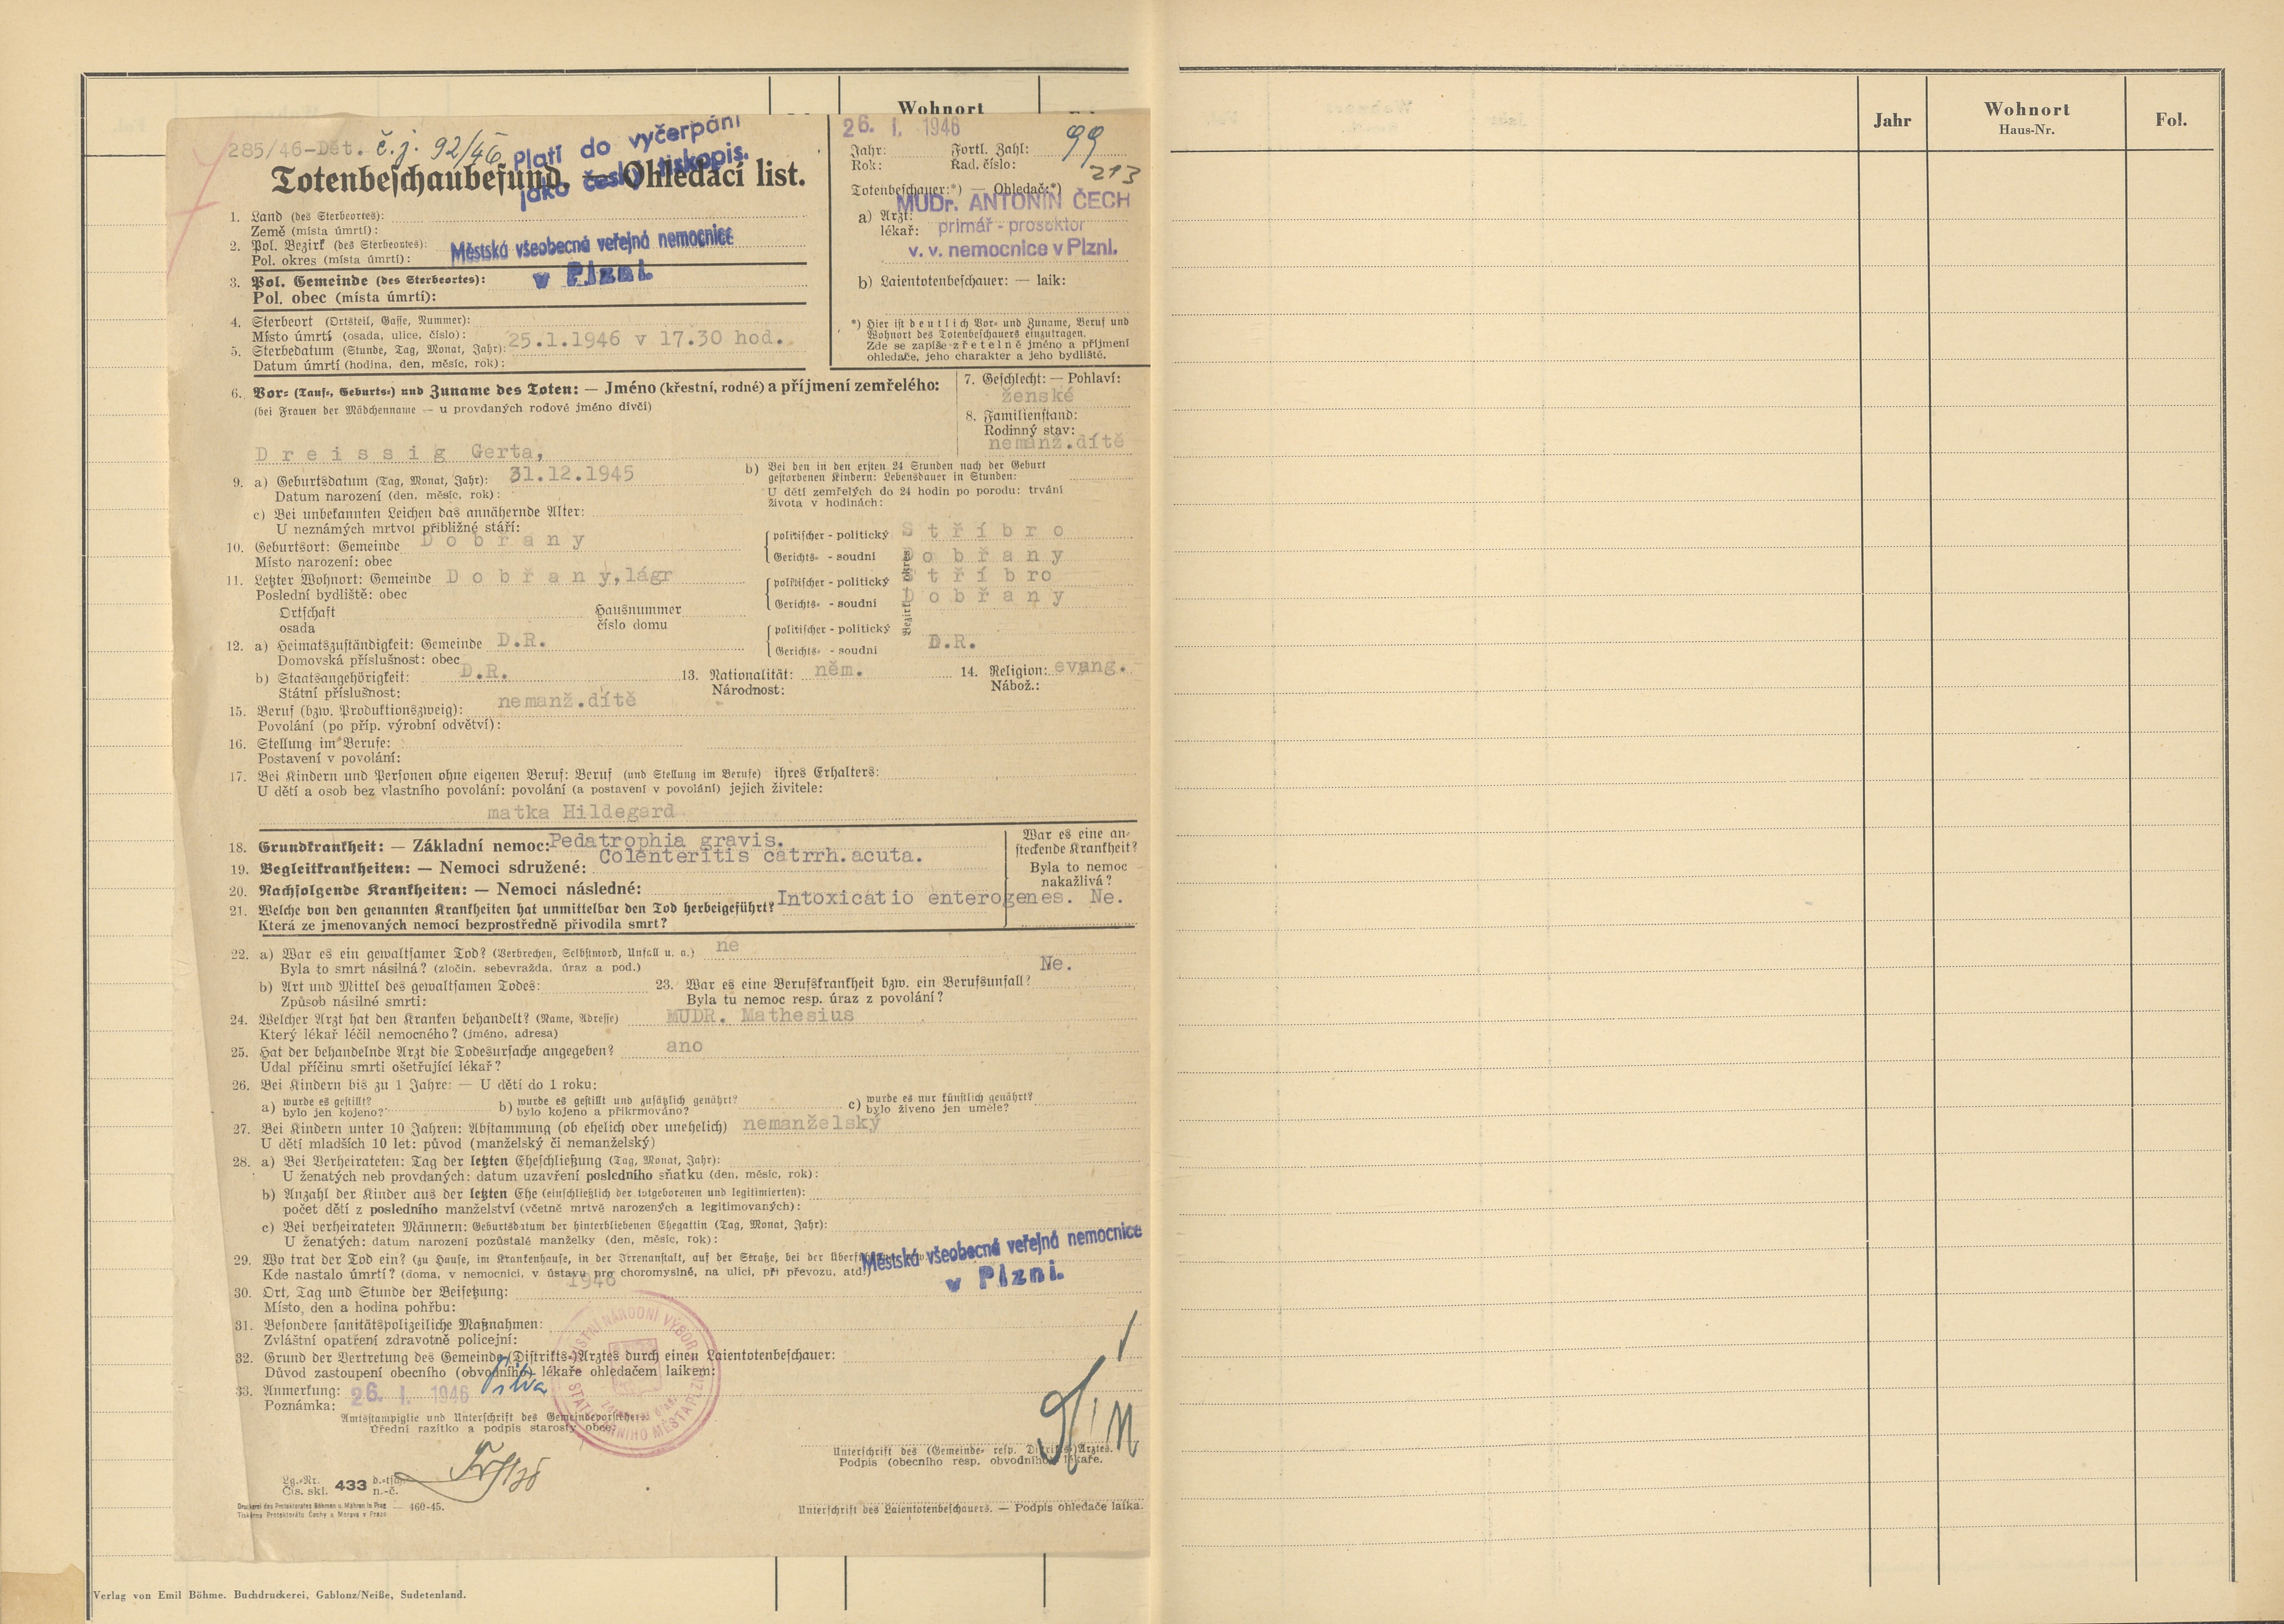 Wohnort
285/46-Dět. č.j. 92/46
Platí do vyčerpání
jako český tiskopis.
Totenbeschaubefund. — Ohledací list.
26. I. 1946
Jahr: Fortl. Zahl: 99
Rok: Řad. číslo:
213
Totenbeschauer:*) — Ohledač:*)
MUDr. ANTONÍN ČECH
a) Arzt:
lékař: primář - prosektor
v. v. nemocnice v Plzni.
b) Laientotenbeschauer: — laik:
*) Hier ist deutlich Vor- und Zuname, Beruf und
Wohnort des Totenbeschauers einzutragen.
Zde se zapíše zřetelně jméno a příjmení
ohledače, jeho charakter a jeho bydliště.
1. Land (des Sterbeortes):
Země (místa úmrtí):
2. Pol. Bezirk (des Sterbeortes):
Pol. okres (místa úmrtí):
Městská všeobecná veřejná nemocnice
v Plzni.
3. Pol. Gemeinde (des Sterbeortes):
Pol. obec (místa úmrtí):
4. Sterbeort (Ortsteil, Gasse, Nummer):
Místo úmrtí (osada, ulice, číslo):
5. Sterbedatum (Stunde, Tag, Monat, Jahr): 25.1.1946 v 17.30 hod.
Datum úmrtí (hodina, den, měsíc, rok):
6. Vor- (Tauf-, Geburts-) und Zuname des Toten: — Jméno (křestní, rodné) a příjmení zemřelého:
(bei Frauen der Mädchenname — u provdaných rodové jméno dívčí)
7. Geschlecht: — Pohlaví:
ženské
8. Familienstand:
Rodinný stav:
nemanž.dítě
Dreissig Gerta,
9. a) Geburtsdatum (Tag, Monat, Jahr): 31.12.1945
Datum narození (den, měsíc, rok):
b) Bei den in den ersten 24 Stunden nach der Geburt
gestorbenen Kindern: Lebensdauer in Stunden:
U dětí zemřelých do 24 hodin po porodu: trvání
života v hodinách:
c) Bei unbekannten Leichen das annähernde Alter:
U neznámých mrtvol přibližné stáří:
10. Geburtsort: Gemeinde Dobřany
Místo narození: obec
politischer - politický Stříbro
Gerichts- - soudní Dobřany
11. Letzter Wohnort: Gemeinde Dobřany, lágr
Poslední bydliště: obec
politischer - politický Stříbro
Gerichts- - soudní Dobřany
Bezirk okres
Ortschaft Hausnummer
osada číslo domu
12. a) Heimatszuständigkeit: Gemeinde D.R.
Domovská příslušnost: obec
politischer - politický
Gerichts- - soudní D.R.
b) Staatsangehörigkeit: D.R.
Státní příslušnost:
13. Nationalität: něm.
Národnost:
14. Religion: evang.
Nábož.:
15. Beruf (bzw. Produktionszweig): nemanž.dítě
Povolání (po příp. výrobní odvětví):
16. Stellung im Berufe:
Postavení v povolání:
17. Bei Kindern und Personen ohne eigenen Beruf: Beruf (und Stellung im Berufe) ihres Erhalters:
U dětí a osob bez vlastního povolání: povolání (a postavení v povolání) jejich živitele:
matka Hildegard
18. Grundkrankheit: — Základní nemoc: Pedatrophia gravis.
19. Begleitkrankheiten: — Nemoci sdružené: Colenteritis catrrh.acuta.
20. Nachfolgende Krankheiten: — Nemoci následné:
War es eine an-
steckende Krankheit?
Byla to nemoc
nakažlivá?
21. Welche von den genannten Krankheiten hat unmittelbar den Tod herbeigeführt? Intoxicatio enterogenes. Ne.
Která ze jmenovaných nemocí bezprostředně přivodila smrt?
22. a) War es ein gewaltsamer Tod? (Verbrechen, Selbstmord, Unfall u. a.) ne
Byla to smrt násilná? (zločin, sebevražda, úraz a pod.)
Ne.
b) Art und Mittel des gewaltsamen Todes:
Způsob násilné smrti:
23. War es eine Berufskrankheit bzw. ein Berufsunfall?
Byla tu nemoc resp. úraz z povolání?
24. Welcher Arzt hat den Kranken behandelt? (Name, Adresse) MUDR. Mathesius
Který lékař léčil nemocného? (jméno, adresa)
25. Hat der behandelnde Arzt die Todesursache angegeben? ano
Udal příčinu smrti ošetřující lékař?
26. Bei Kindern bis zu 1 Jahre: — U dětí do 1 roku:
a) wurde es gestillt?
bylo jen kojeno?
b) wurde es gestillt und zusätzlich genährt?
bylo kojeno a přikrmováno?
c) wurde es nur künstlich genährt?
bylo živeno jen uměle?
27. Bei Kindern unter 10 Jahren: Abstammung (ob ehelich oder unehelich) nemanželský
U dětí mladších 10 let: původ (manželský či nemanželský)
28. a) Bei Verheirateten: Tag der letzten Eheschließung (Tag, Monat, Jahr):
U ženatých neb provdaných: datum uzavření posledního sňatku (den, měsíc, rok):
b) Anzahl der Kinder aus der letzten Ehe (einschließlich der totgeborenen und legitimierten):
počet dětí z posledního manželství (včetně mrtvě narozených a legitimovaných):
c) Bei verheirateten Männern: Geburtsdatum der hinterbliebenen Ehegattin (Tag, Monat, Jahr):
U ženatých: datum narození pozůstalé manželky (den, měsíc, rok):
29. Wo trat der Tod ein? (zu Hause, im Krankenhause, in der Irrenanstalt, auf der Straße, bei der
Kde nastalo úmrtí? (doma, v nemocnici, v ústavu pro choromyslné, na ulici, při převozu, atd.)
Městská všeobecná veřejná nemocnice
v Plzni.
1946
30. Ort, Tag und Stunde der Beisetzung:
Místo, den a hodina pohřbu:
31. Besondere sanitätspolizeiliche Maßnahmen:
Zvláštní opatření zdravotně policejní:
32. Grund der Vertretung des Gemeinde-(Distrikts-)Arztes durch einen Laientotenbeschauer:
Důvod zastoupení obecního (obvodního) lékaře ohledačem laikem:
33. Anmerkung: 26. I. 1946
Poznámka:
MÍSTNÍ NÁRODNÍ VÝBOR STATUTÁRNÍHO MĚSTA PLZNĚ
Amtsstampiglie und Unterschrift des Gemeindevorstehers
Úřední razítko a podpis starosty obce
Unterschrift des (Gemeinde- resp. Distrikts-)Arztes.
Podpis (obecního resp. obvodního) lékaře.
Lg.-Nr.
Čís. skl. 433 d.-tsch.
n.-č.
Druckerei des Protektorates Böhmen u. Mähren in Prag
Tiskárna Protektorátu Čechy a Morava v Praze — 460-45.
Unterschrift des Laientotenbeschauers. — Podpis ohledače laika.
Verlag von Emil Böhme. Buchdruckerei, Gablonz/Neiße, Sudetenland.
Jahr
Wohnort
Haus-Nr.
Fol.